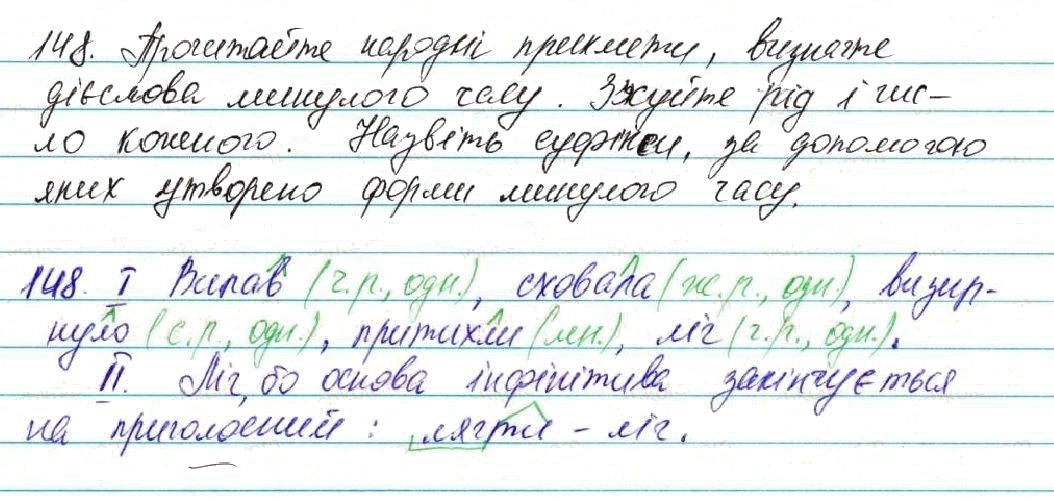 148. Прочитайте народні прикмети, визначте
дієслова минулого часу. З'ясуйте рід і чис-
ло кожного. Назвіть суфікси, за допомогою
яких утворено форми минулого часу.
148. I Випав (ч.р., одн.), сховала (ж.р., одн.), визир-
нуло (с.р., одн.), притихли (мн.), ліг (ч.р., одн.).
II. Ліг, бо основа інфінітива закінчується
на приголосний: лягти – ліг.